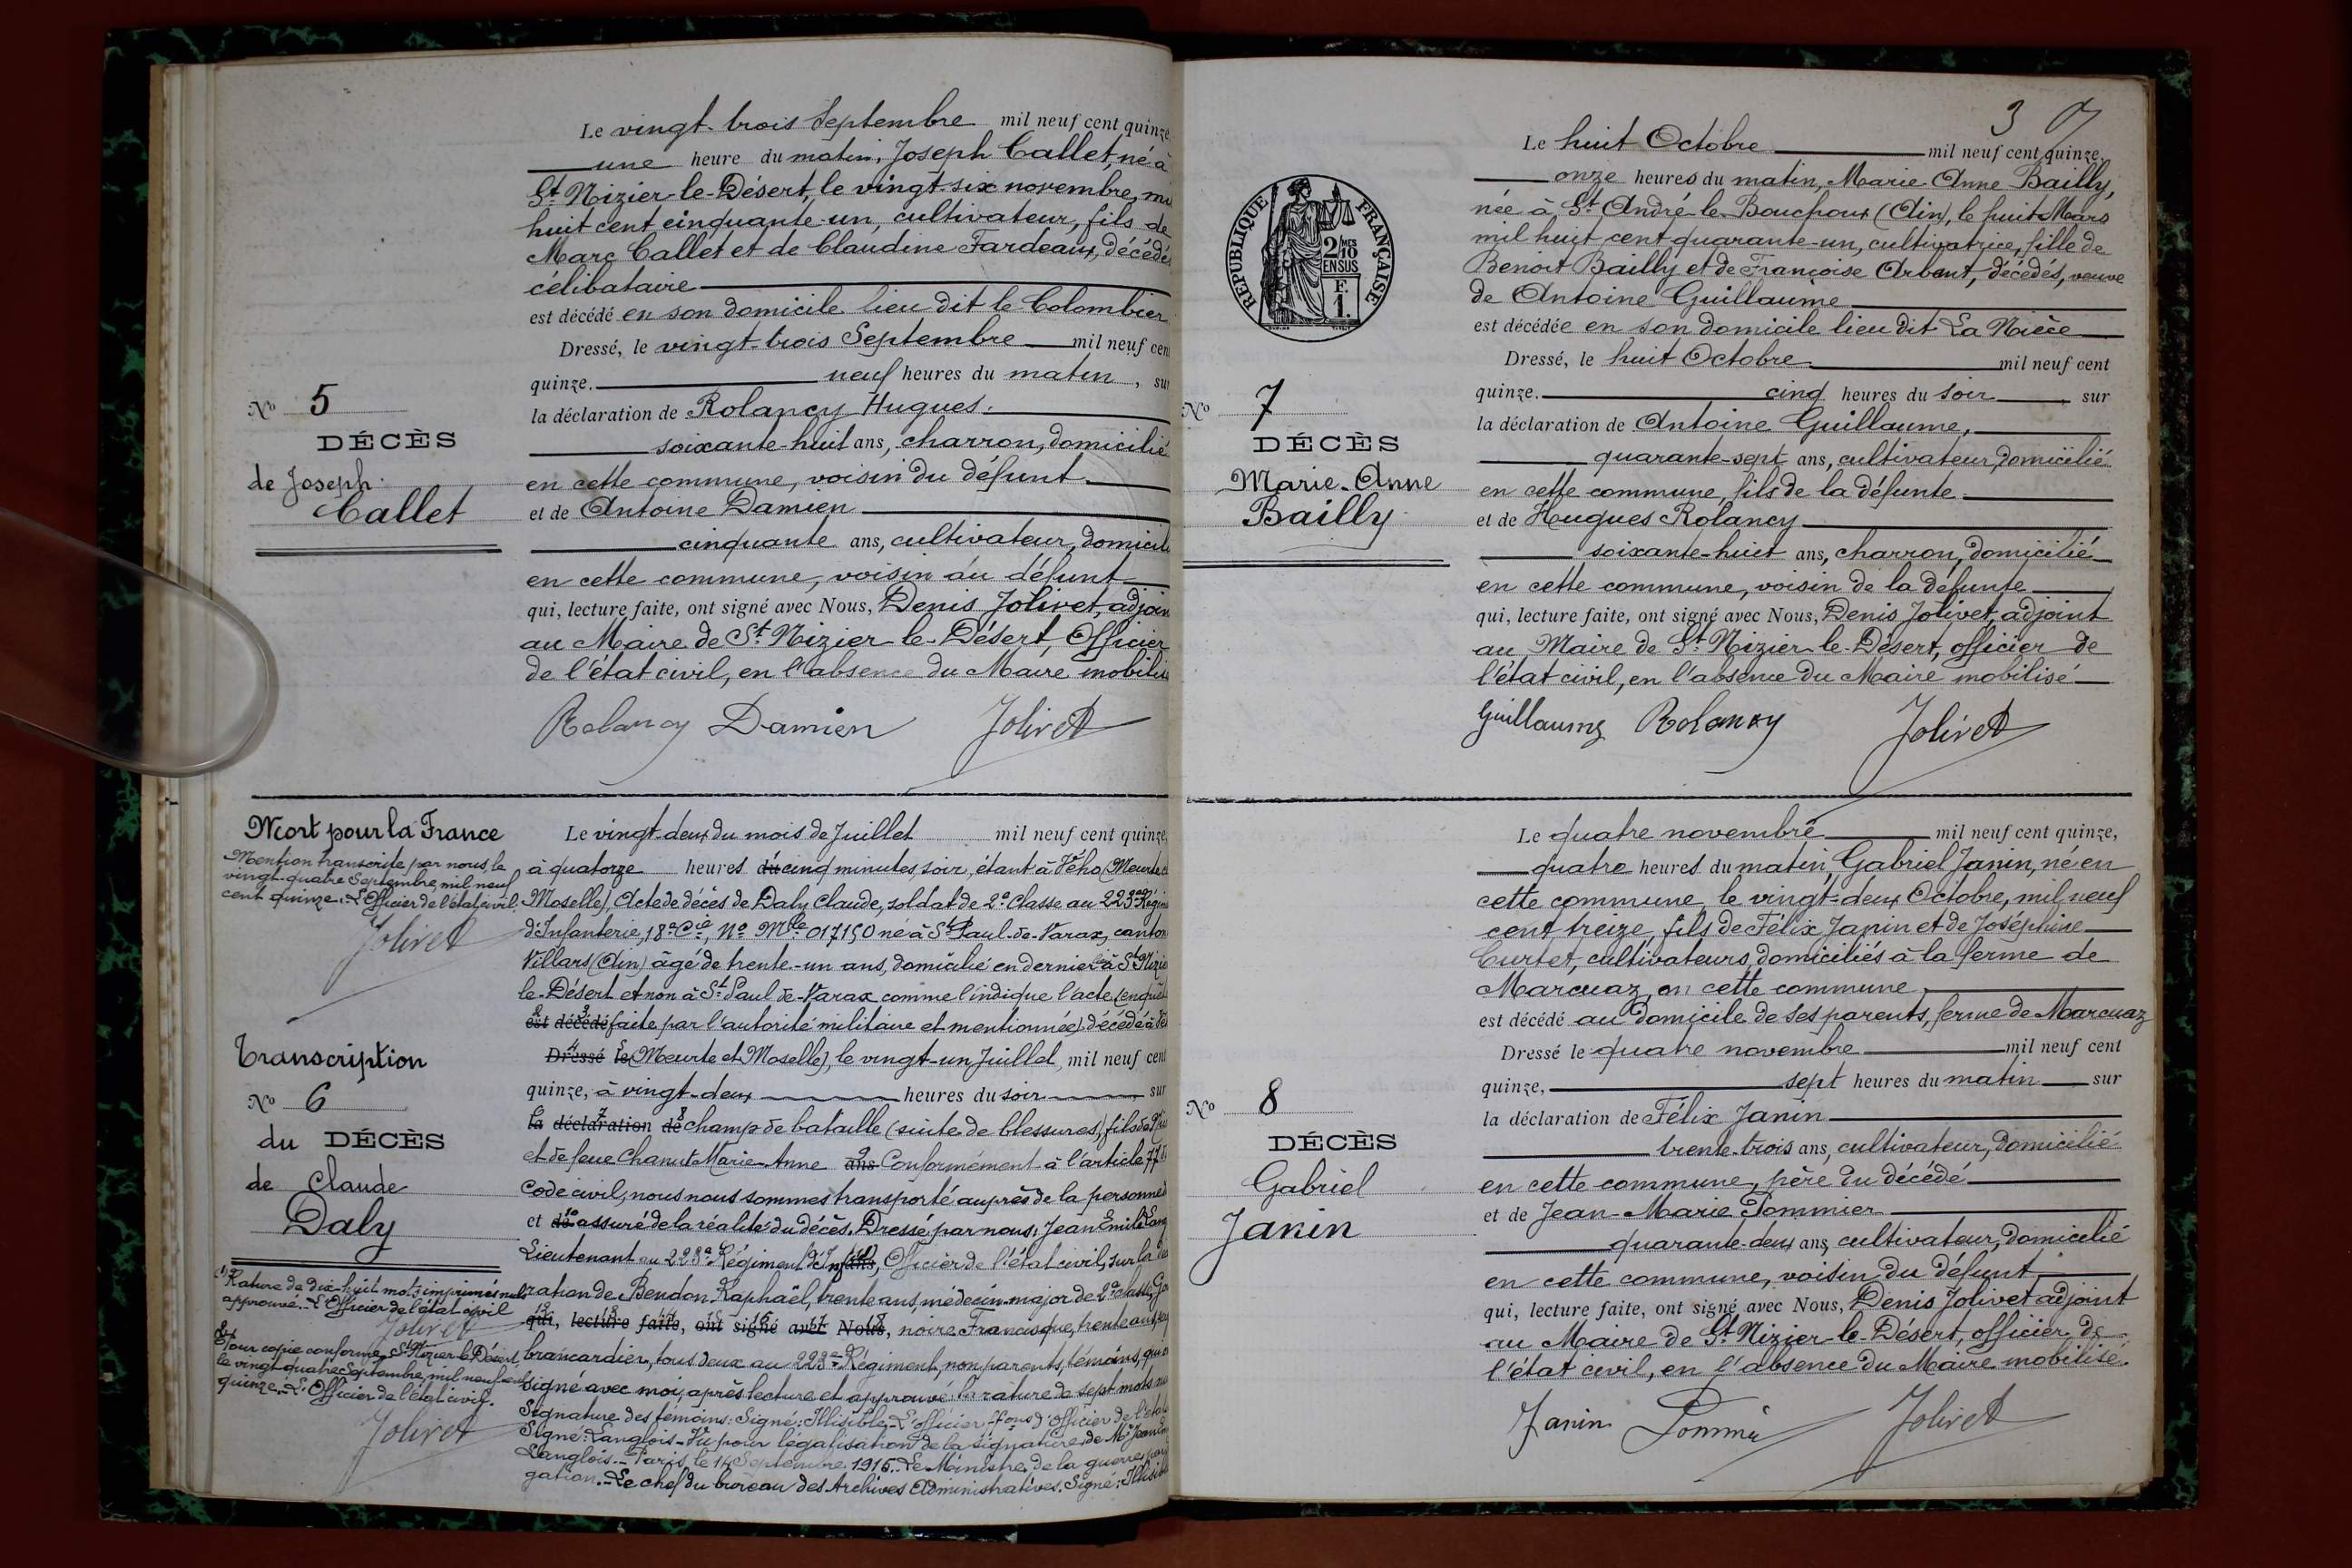 Le vingt-trois Septembre mil neuf cent quinze
une heure du matin, Joseph Callet, né à
St Nizier-le-Désert, le vingt-six novembre, mi
huit cent cinquante-un, cultivateur, fils de
Marc Callet et de Claudine Fardeaux, décédé
célibataire
est décédé en son domicile lieu dit le Colombier
Dressé, le vingt-trois Septembre mil neuf cen
quinze. neuf heures du matin, su
la déclaration de Rolancy Hugues.
soixante-huit ans, charron, domicilié
en cette commune, voisin du défunt
et de Antoine Damien
cinquante ans, cultivateur, domicil
en cette commune, voisin du défunt
qui, lecture faite, ont signé avec Nous, Denis Jolivet, adjoin
au Maire de St Nizier-le-Désert, Officier
de l'état civil, en l'absence du Maire mobilis
Rolancy Damien Jolivet
No 5
DÉCÈS
de Joseph
Callet
Mort pour la France
Mention transcrite par nous, le
vingt-quatre Septembre, mil neuf
cent quinze. L'Officier de l'état civil.
Jolivet
Transcription
No 6
du DÉCÈS
de Claude
Daly
(1) Rature de dix-huit mots imprimés nuls
approuvé. L'Officier de l'état civil
Jolivet
Pour copie conforme, St Nizier le Désert,
le vingt-quatre Septembre, mil neuf cent
quinze. L'Officier de l'état civil.
Jolivet
Le vingt-deux du mois de Juillet mil neuf cent quinze,
à quatorze heures du cinq minutes, soir, étant à Vého (Meurthe
Moselle), Acte de décès de Daly Claude, soldat de 2e Classe au 223e Régim
d'Infanterie, 18e Cie, No Mle 017150 né à St Paul-de-Varax, canton
Villars (Ain) âgé de trente-un ans, domicilié en dernier à St Nizie
le-Désert et non à St Paul de-Varax comme l'indique l'acte (enquêt
2 3
est décédé faite par l'autorité militaire et mentionnée), décédé à Vé
4 5
Dressé le (Meurte et Moselle), le vingt-un Juillet, mil neuf cent
quinze, à vingt-deux heures du soir sur
6 7 8
la déclaration de champ de bataille (suite de blessures), fils de
et de feue Chanut Marie-Anne ans Conformément à l'article 77
Code civil, nous nous sommes transporté auprès de la personne
et de assuré de la réalité du décès. Dressé par nous, Jean Emile Lang
Lieutenant au 223e Régiment d'Inf ans, Officier de l'état civil, sur la dé
ration de Bendon Raphaël, trente ans, médecin-major de 2e classe,
12 13 14 15 16 17 18
qui, lecture faite, ont signé avec Nous, noire Francisque, trente ans,
brancardier, tous deux au 223e Régiment, non parents, témoins, qui
signé avec moi, après lecture et approuvé la rature de sept mots
Signature des témoins: Signé: Illisible. L'officier ffons d'officier de l'état
Signé: Langlois. Vu pour légalisation de la signature de Mr Jean
Langlois. Paris, le 14 Septembre 1915. Le Ministre de la guerre,
gation. Le chef du bureau des Archives Administratives. Signé: Illisible
3 7
RÉPUBLIQUE FRANÇAISE
2 MES
10
EN SUS
F.
1.
Le huit Octobre mil neuf cent quinze.
onze heures du matin, Marie Anne Bailly,
née à St André-le-Bouchoux (Ain), le huit Mars
mil huit cent quarante-un, cultivatrice, fille de
Benoit Bailly et de Françoise Arbant, décédés, veuve
de Antoine Guillaume
est décédée en son domicile lieu dit La Nièce
Dressé, le huit Octobre mil neuf cent
quinze. cinq heures du soir sur
la déclaration de Antoine Guillaume,
quarante-sept ans, cultivateur, domicilié
en cette commune, fils de la défunte
et de Hugues Rolancy
soixante-huit ans, charron, domicilié
en cette commune, voisin de la défunte
qui, lecture faite, ont signé avec Nous, Denis Jolivet, adjoint
au Maire de St Nizier-le-Désert, officier de
l'état civil, en l'absence du Maire mobilisé
Guillaume Rolancy Jolivet
No 7
DÉCÈS
Marie-Anne
Bailly
Le quatre novembre mil neuf cent quinze,
quatre heures du matin, Gabriel Janin, né en
cette commune, le vingt-deux Octobre, mil neuf
cent treize, fils de Félix Janin et de Joséphine
Curtet, cultivateurs, domiciliés à la ferme de
Marcuaz, en cette commune
est décédé au domicile de ses parents, ferme de Marcuaz
Dressé le quatre novembre mil neuf cent
quinze, sept heures du matin sur
la déclaration de Félix Janin
trente-trois ans, cultivateur, domicilié
en cette commune, père du décédé
et de Jean-Marie Pommier
quarante-deux ans, cultivateur, domicilié
en cette commune, voisin du défunt
qui, lecture faite, ont signé avec Nous, Denis Jolivet adjoint
au Maire de St Nizier-le-Désert, officier de
l'état civil, en l'absence du Maire mobilisé.
Janin Jolivet
No 8
DÉCÈS
Gabriel
Janin